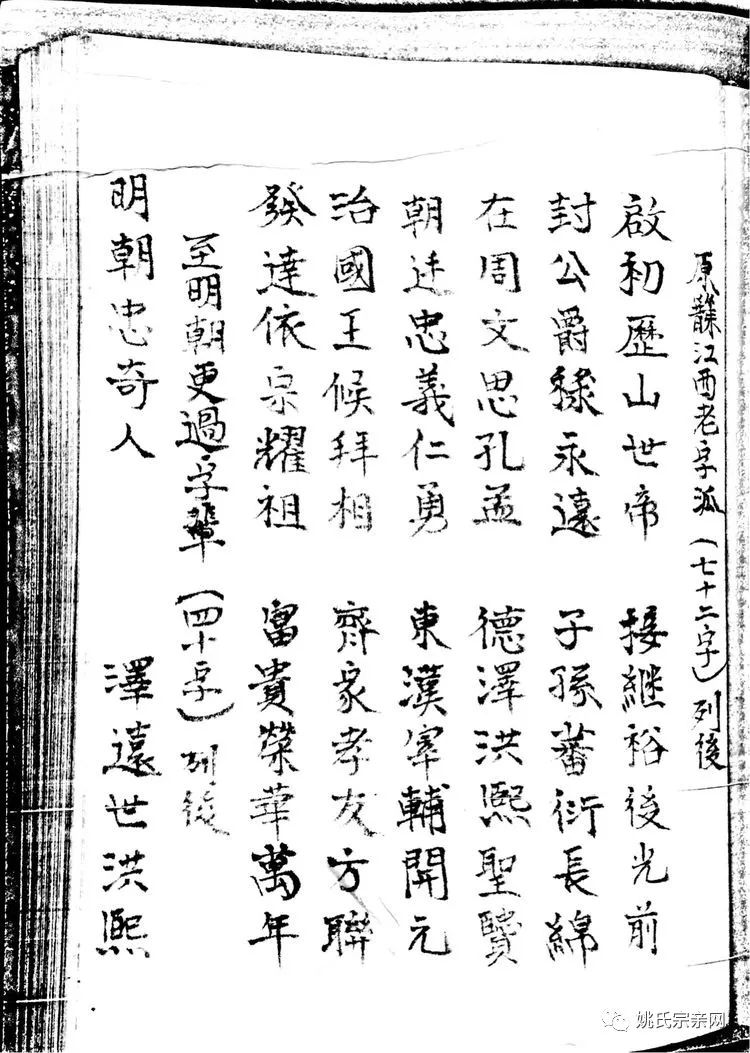 原籍江西老字派(七十二字)列後
啟初歷山世帝 接繼裕後光前
封公爵祿永遠 子孫蕃衍長綿
在周文思孔孟 德澤洪熙聖賢
朝廷忠義仁勇 東漢宰輔開元
治國王候拜相 齊家孝友方聯
發達依宗耀祖 富貴榮華萬年
至明朝更過字輩(四十字)列後
明朝忠奇人 澤遠世洪熙
姚氏宗亲网